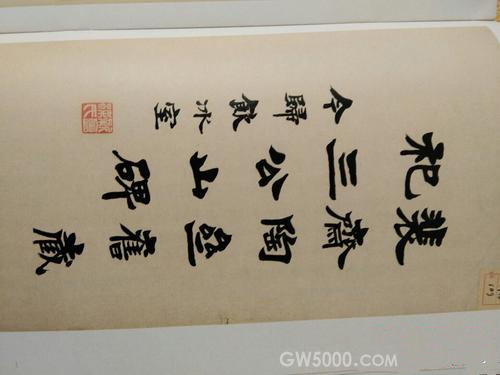 祀三公山碑
裴齋陶盦舊藏
今歸飲冰室
GW5000.COM